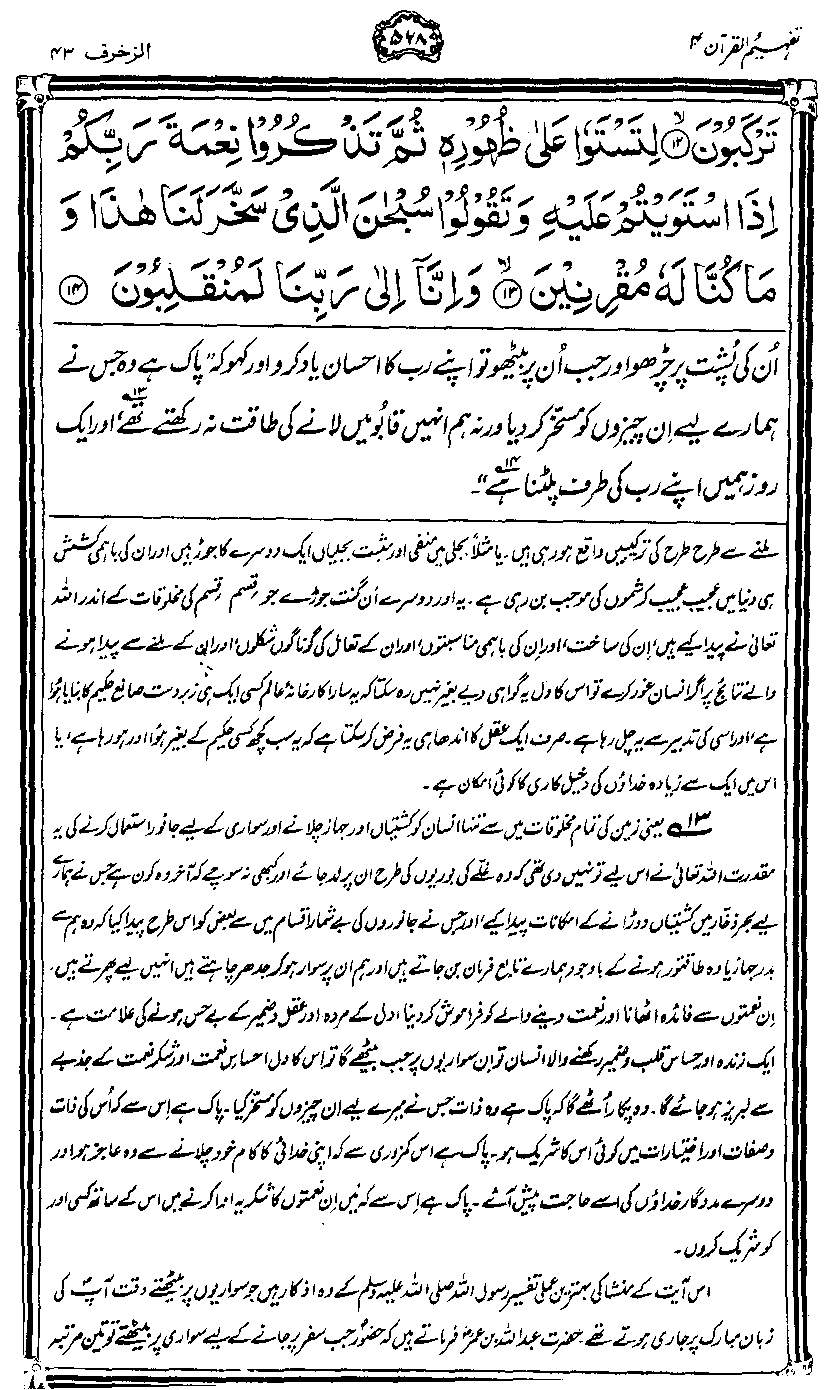 تفہیم القرآن ۴
۵۲۸
الزخرف ۴۳
تَرْكَبُوْنَ ۱۲ لِتَسْتَوٗا عَلٰى ظُهُوْرِهٖ ثُمَّ تَذْكُرُوْا نِعْمَةَ رَبِّكُمْ
اِذَا اسْتَوَيْتُمْ عَلَيْهِ وَتَقُوْلُوْا سُبْحٰنَ الَّذِيْ سَخَّرَ لَنَا هٰذَا وَ
مَا كُنَّا لَهٗ مُقْرِنِيْنَ ۱۳ وَاِنَّآ اِلٰى رَبِّنَا لَمُنْقَلِبُوْنَ ۱۴
اُن کی پُشت پر چڑھو اور جب اُن پر بیٹھو تو اپنے رب کا احسان یاد کرو اور کہو کہ ”پاک ہے وہ جس نے
ہمارے لیے اِن چیزوں کو مسخّر کر دیا ورنہ ہم انہیں قابُو میں لانے کی طاقت نہ رکھتے تھے۱۳، اور ایک
روز ہمیں اپنے رب کی طرف پلٹنا ہے۱۴“۔
ملنے سے طرح طرح کی ترکیبیں واقع ہو رہی ہیں۔ یا مثلاً بجلی میں منفی اور مثبت بجلیاں ایک دوسرے کا جوڑ ہیں اور ان کی باہمی کشش
ہی دنیا میں عجیب عجیب کرشموں کی موجب بن رہی ہے۔ یہ اور دوسرے اَن گنت جوڑے جو قِسم قِسم کی مخلوقات کے اندر اللہ
تعالیٰ نے پیدا کیے ہیں، اِن کی ساخت، اور اِن کی باہمی مناسبتوں، اور ان کے تعامل کی گوناگوں شکلوں، اور اِن کے ملنے سے پیدا ہونے
والے نتائج پر اگر انسان غور کرے تو اس کا دل یہ گواہی دیے بغیر نہیں رہ سکتا کہ یہ سارا کارخانۂ عالم کسی ایک ہی زبردست صانع حکیم کا بنایا ہوُا
ہے، اور اسی کی تدبیر سے یہ چل رہا ہے۔ صرف ایک عقل کا اندھا ہی یہ فرض کر سکتا ہے کہ یہ سب کچھ کسی حکیم کے بغیر ہوُا اور ہو رہا ہے، یا
اس میں ایک سے زیادہ خداؤں کی دخیل کاری کا کوئی امکان ہے۔
۱۳ یعنی زمین کی تمام مخلوقات میں سے تنہا انسان کو کشتیاں اور جہاز چلانے اور سواری کے لیے جانور استعمال کرنے کی یہ
مقدرت اللہ تعالیٰ نے اس لیے تو نہیں دی تھی کہ وہ غلّے کی بوریوں کی طرح ان پر لد جائے اور کبھی نہ سوچے کہ آخر وہ کون ہے جس نے ہمارے
لیے بحرِ ذخار میں کشتیاں دوڑانے کے امکانات پیدا کیے، اور جس نے جانوروں کی بے شمار اقسام میں سے بعض کو اس طرح پیدا کیا کہ وہ ہم سے
بدرجہا زیادہ طاقتور ہونے کے باوجود ہمارے تابع فرمان بن جاتے ہیں اور ہم ان پر سوار ہو کر جدھر چاہتے ہیں انہیں لیے پھرتے ہیں۔
اِن نعمتوں سے فائدہ اٹھانا اور نعمت دینے والے کو فراموش کر دینا، دل کے مردہ اور عقل و ضمیر کے بے حس ہونے کی علامت ہے۔
ایک زندہ اور حساس قلب و ضمیر رکھنے والا انسان تو اِن سواریوں پر جب بیٹھے گا تو اس کا دل احساسِ نعمت اور شکرِ نعمت کے جذبے
سے لبریز ہو جائے گا۔ وہ پکار اُٹھے گا کہ پاک ہے وہ ذات جس نے میرے لیے ان چیزوں کو مسخّر کیا۔ پاک ہے اِس سے کہ اُس کی ذات
و صفات اور اختیارات میں کوئی اس کا شریک ہو۔ پاک ہے اس کمزوری سے کہ اپنی خدائی کا کام خود چلانے سے وہ عاجز ہو اور
دوسرے مددگار خداؤں کی اسے حاجت پیش آئے۔ پاک ہے اِس سے کہ مَیں اِن نعمتوں کا شکریہ ادا کرنے میں اس کے ساتھ کسی اور
کو شریک کروں۔
اس آیت کے منشا کی بہترین عملی تفسیر رسول اللہ صلی اللہ علیہ وسلم کے وہ اذکار ہیں جو سواریوں پر بیٹھتے وقت آپؐ کی
زبان مبارک پر جاری ہوتے تھے۔ حضرت عبداللہ بن عمرؓ فرماتے ہیں کہ حضورؐ جب سفر پر جانے کے لیے سواری پر بیٹھتے تو تین مرتبہ